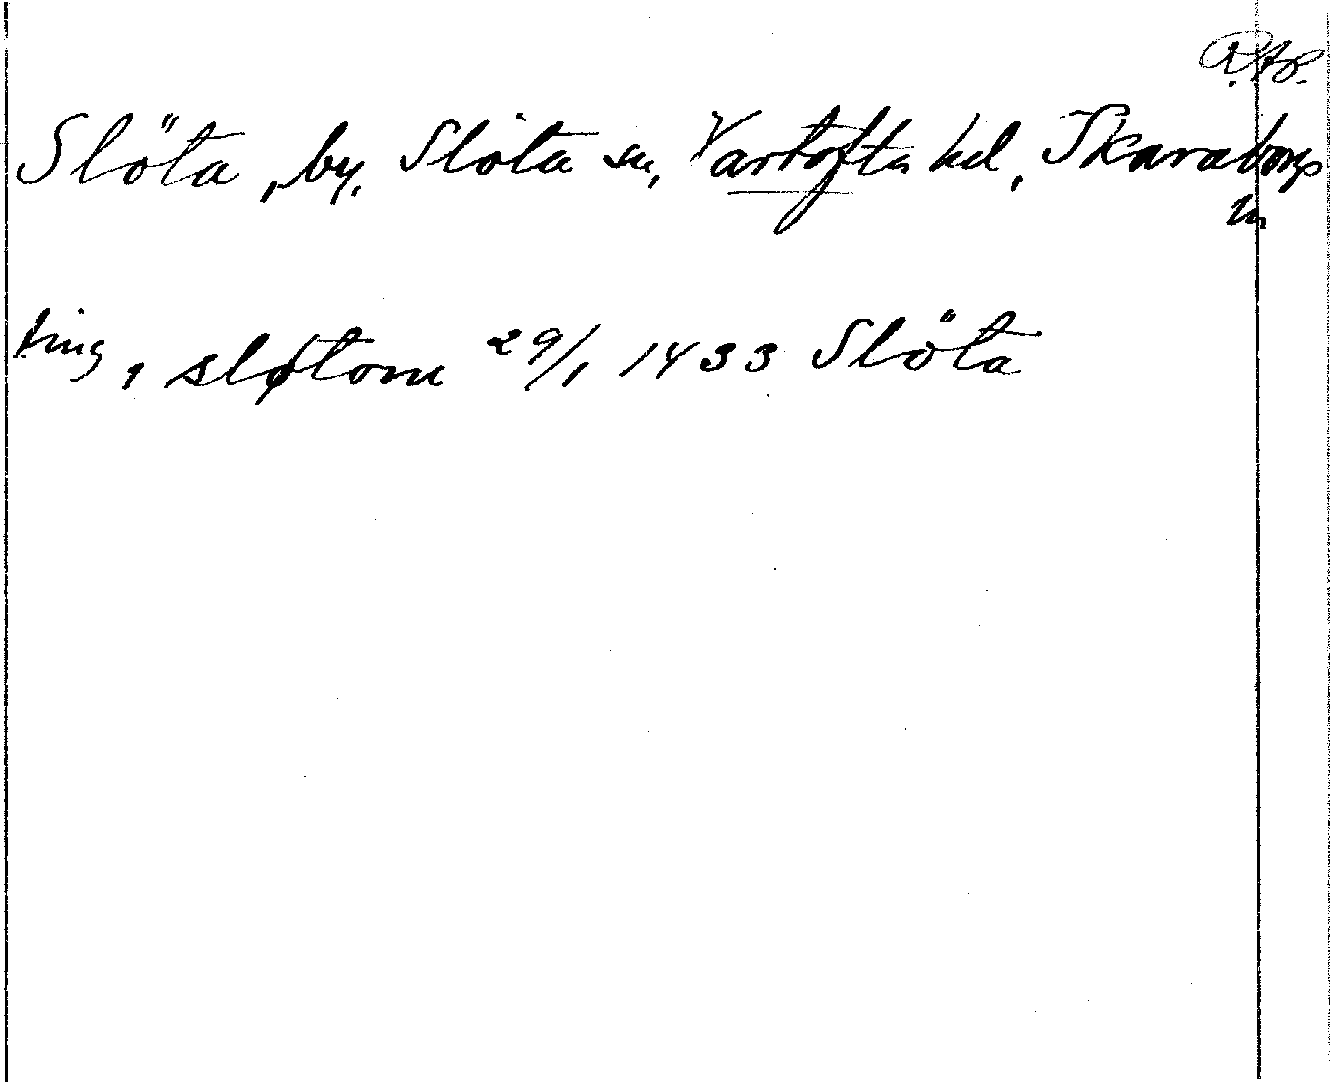 RAP.
Slöta, by, Slöta sn, Vartofta hd, Skaraborgs
ln
ting, sløtom 29/1 1433 Slöta